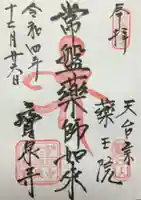 奉拝
天台宗
薬王院
常盤薬師如来
寳泉寺
令和四年
十二月廿六日